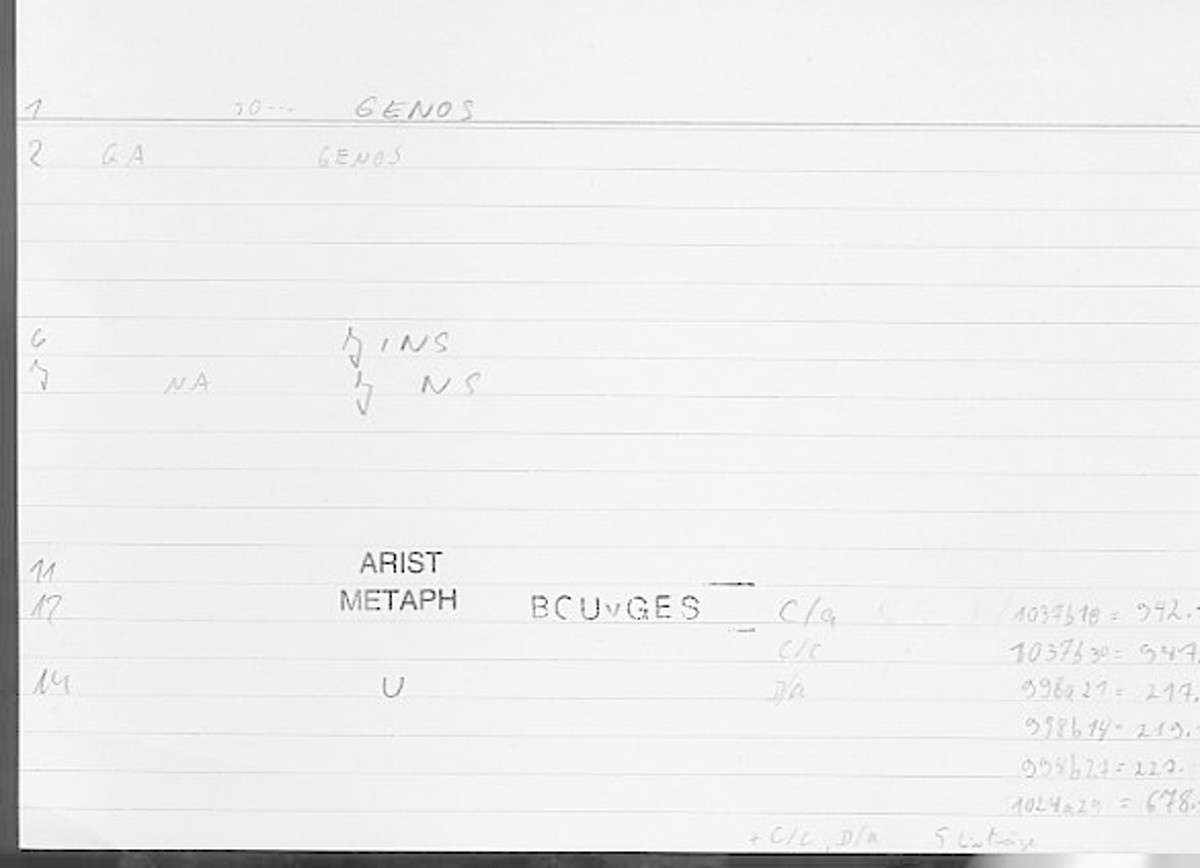 1 GENOS
2 GA GENOS
6 INS
NA NS
11 ARIST
12 METAPH BOUvGES C/a 1037b18 = 942.
C/c 1037b30 = 947.
14 U D/a 998a21 = 217.
998b14 = 219.
998b27 = 227.
1024a29 = 678.
+ C/c, D/a 5